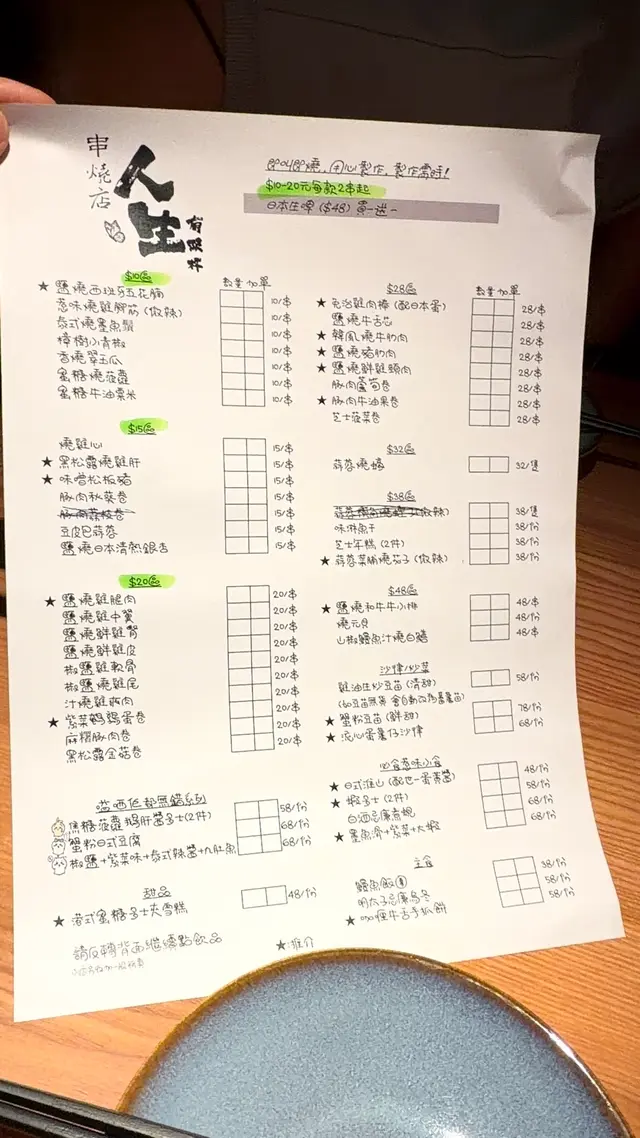 串燒店
人生
有限串
即叫即燒，用心製作，製作需時！
$10-20元每款2串起
日本生啤 ($48) 買一送一
$10區
數量 加單
★ 鹽燒西班牙五花腩 10/串
惹味燒雞腳筋 (微辣) 10/串
泰式燒墨魚鬚 10/串
樟樹小青椒 10/串
香燒翠玉瓜 10/串
蜜糖燒菠蘿 10/串
蜜糖牛油粟米 10/串
$15區
燒雞心 15/串
★ 黑松露燒雞肝 15/串
★ 味噌松板豬 15/串
豚肉秋葵卷 15/串
15/串
豆皮包蒜蓉 15/串
鹽燒日本清熱銀杏 15/串
$20區
★ 鹽燒雞腿肉 20/串
鹽燒雞中翼 20/串
鹽燒鮮雞腎 20/串
鹽燒鮮雞皮 20/串
椒鹽雞軟骨 20/串
椒鹽燒雞尾 20/串
汁燒雞 肉 20/串
★ 紫菜鵪鶉蛋卷 20/串
麻糬豚肉卷 20/串
黑松露金菇卷 20/串
嗌哂佢都無錯系列
焦糖菠蘿鵝肝醬多士(2件) 58/份
蟹粉日式豆腐 68/份
椒鹽+紫菜味+泰式辣醬+九肚魚 68/份
甜品
★ 港式蜜糖多士夾雪糕 48/份
請反轉背面繼續點飲品
★:推介
$28區
數量 加單
★ 免治雞肉棒 (配日本蛋) 28/串
鹽燒牛舌芯 28/串
★ 韓風燒牛肋肉 28/串
★ 鹽燒豬肋肉 28/串
★ 鹽燒鮮雞頸肉 28/串
豚肉蘆筍卷 28/串
★ 豚肉牛油果卷 28/串
芝士菠菜卷 28/串
$32區
蒜蓉燒蠔 32/隻
$38區
38/隻
味淋魚干 38/份
芝士年糕 (2件) 38/份
★ 蒜蓉菜脯燒茄子 (微辣) 38/份
$48區
★ 鹽燒和牛牛小排 48/串
燒元貝 48/份
山椒鰻魚汁燒白鱔 48/串
沙律/炒菜
雞油生炒豆苗 (清甜) 58/份
(如豆苗無貨 會自動改為番薯苗)
★ 蟹粉豆苗 (鮮甜) 78/份
★ 流心蛋薯仔沙律 68/份
必食惹味小食
★ 日式淮山 (配世一蛋黃醬) 48/份
★ 蝦多士 (2件) 58/份
白酒忌廉煮蜆 68/份
★ 墨魚滑+紫菜+大蝦 68/份
主食
鰻魚飯 38/份
明太子忌廉烏冬 58/份
★ 咖喱牛舌手抓餅 58/份